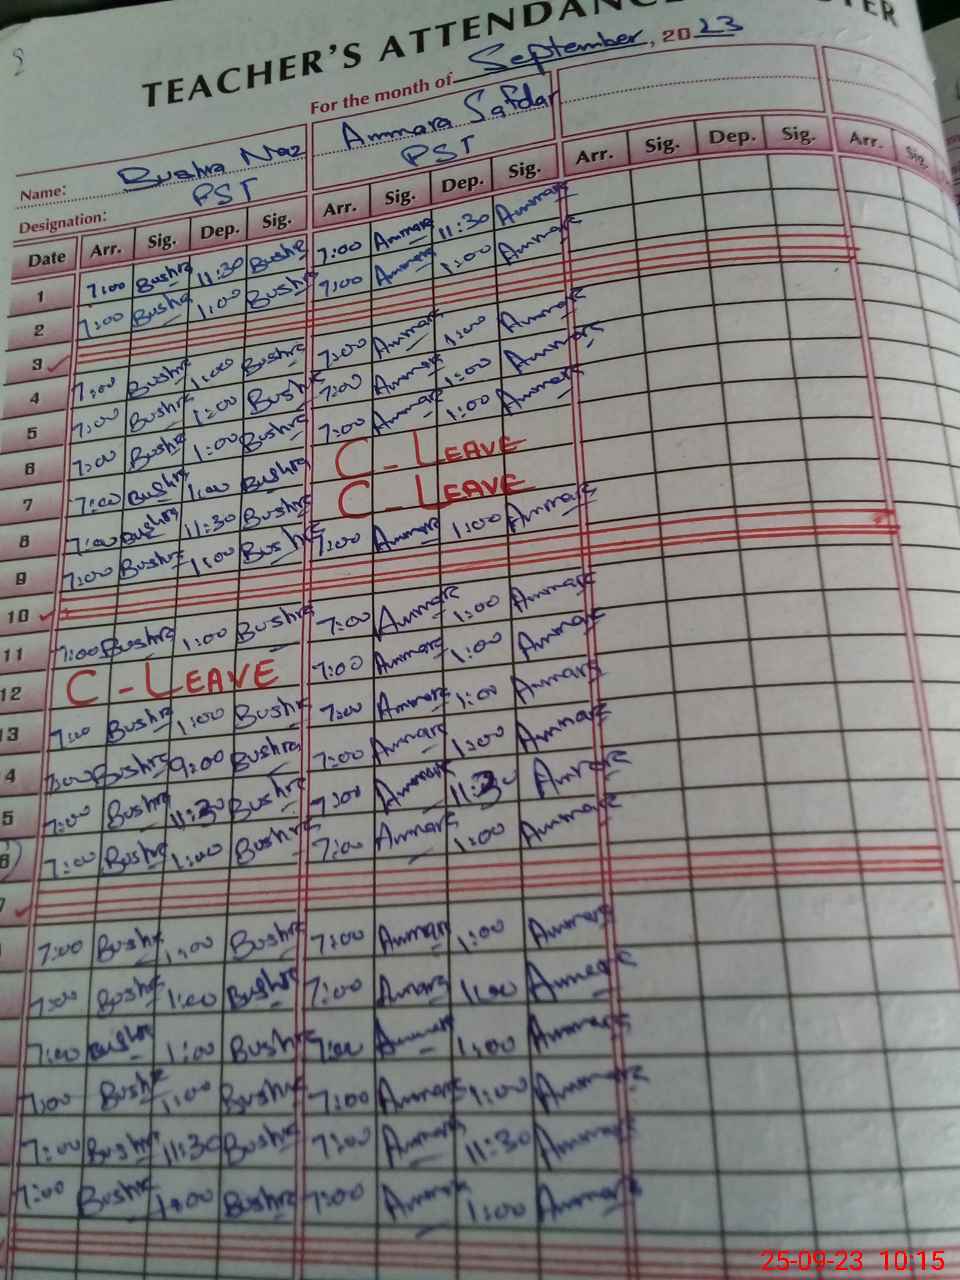 TEACHER'S ATTENDANC TER
For the month of September, 2023
Name: Bushra Naz Ammara Safdar
Designation: PST PST
Date Arr. Sig. Dep. Sig. Arr. Sig. Dep. Sig. Arr. Sig. Dep. Sig. Arr. Sig.
1 7:00 Bushra 11:30 Bushra 7:00 Ammara 11:30 Ammara
2 7:00 Bushra 1:00 Bushra 7:00 Ammara 1:00 Ammara
3
4 7:00 Bushra 1:00 Bushra 7:00 Ammara 1:00 Ammara
5 7:00 Bushra 1:00 Bushra 7:00 Ammara 1:00 Ammara
6 7:00 Bushra 1:00 Bushra 7:00 Ammara 1:00 Ammara
7 7:00 Bushra 1:00 Bushra C-LEAVE
8 7:00 Bushra 11:30 Bushra C-LEAVE
9 7:00 Bushra 1:00 Bushra 7:00 Ammara 1:00 Ammara
10
11 7:00 Bushra 1:00 Bushra 7:00 Ammara 1:00 Ammara
12 C-LEAVE 7:00 Ammara 1:00 Ammara
13 7:00 Bushra 1:00 Bushra 7:00 Ammara 1:00 Ammara
4 7:00 Bushra 9:00 Bushra 7:00 Ammara 1:00 Ammara
5 7:00 Bushra 11:30 Bushra 7:00 Ammara 11:30 Ammara
6 7:00 Bushra 1:00 Bushra 7:00 Ammara 1:00 Ammara
7
7:00 Bushra 1:00 Bushra 7:00 Ammara 1:00 Ammara
7:00 Bushra 1:00 Bushra 7:00 Ammara 1:00 Ammara
7:00 Bushra 1:00 Bushra 7:00 Ammara 1:00 Ammara
7:00 Bushra 1:00 Bushra 7:00 Ammara 1:00 Ammara
7:00 Bushra 11:30 Bushra 7:00 Ammara 11:30 Ammara
7:00 Bushra 1:00 Bushra 7:00 Ammara 1:00 Ammara
25-09-23 10:15